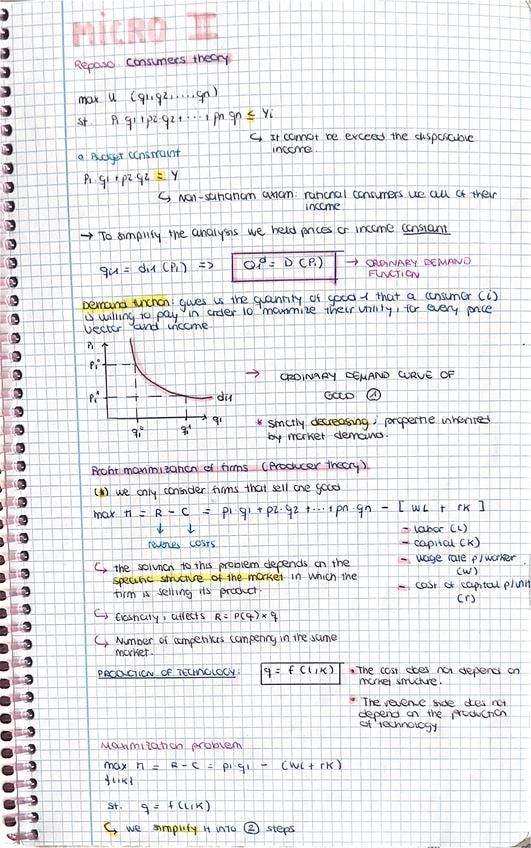 MICRO II
Repaso: Consumers theory
max U (q1,q2,....,qn)
st. P1 q1+p2·q2+···+pn qn ≤ Yi
↳ It cannot be exceed the disposable
income.
a Budget constraint
P1 q1+p2 q2 = Y
↳ Non-satiation axiom: rational consumers use all of their
income
→ To simplify the analysis we held prices or income constant
qi1 = di1 (P1) => Q1ᵈ = D (P1) → ORDINARY DEMAND
FUNCTION
Demand function: gives us the quantity of good 1 that a consumer (i)
is willing to pay in order to maximize their utility, for every price
vector and income.
P1
P1⁰
P1¹
di1
q1
q1⁰ q1¹
→ ORDINARY DEMAND CURVE OF
GOOD 1
* Strictly decreasing; propertie inherited
by market demand.
Profit maximization of firms (Producer theory)
(*) we only consider firms that sell one good
max π = R - C = p1·q1 + p2·q2 + ··· + pn·qn - [ WL + rK ]
↓ ↓
revenues costs
- labor (L)
- capital (K)
- wage rate p/worker
(w)
- cost of capital p/unit
(r)
↳ the solution to this problem depends on the
specific structure of the market in which the
firm is selling its product.
↳ Elasticity, affects R = P(q) × q
↳ Number of competitors competing in the same
market.
PRODUCTION OF TECHNOLOGY: q = f (L,K)
* The cost does not depend on
market structure.
* The revenue side does not
depend on the production
of technology
Maximization problem
max π = R - C = p1·q1 - (WL + rK)
{L,K}
st. q = f(L,K)
↳ we simplify it into 2 steps